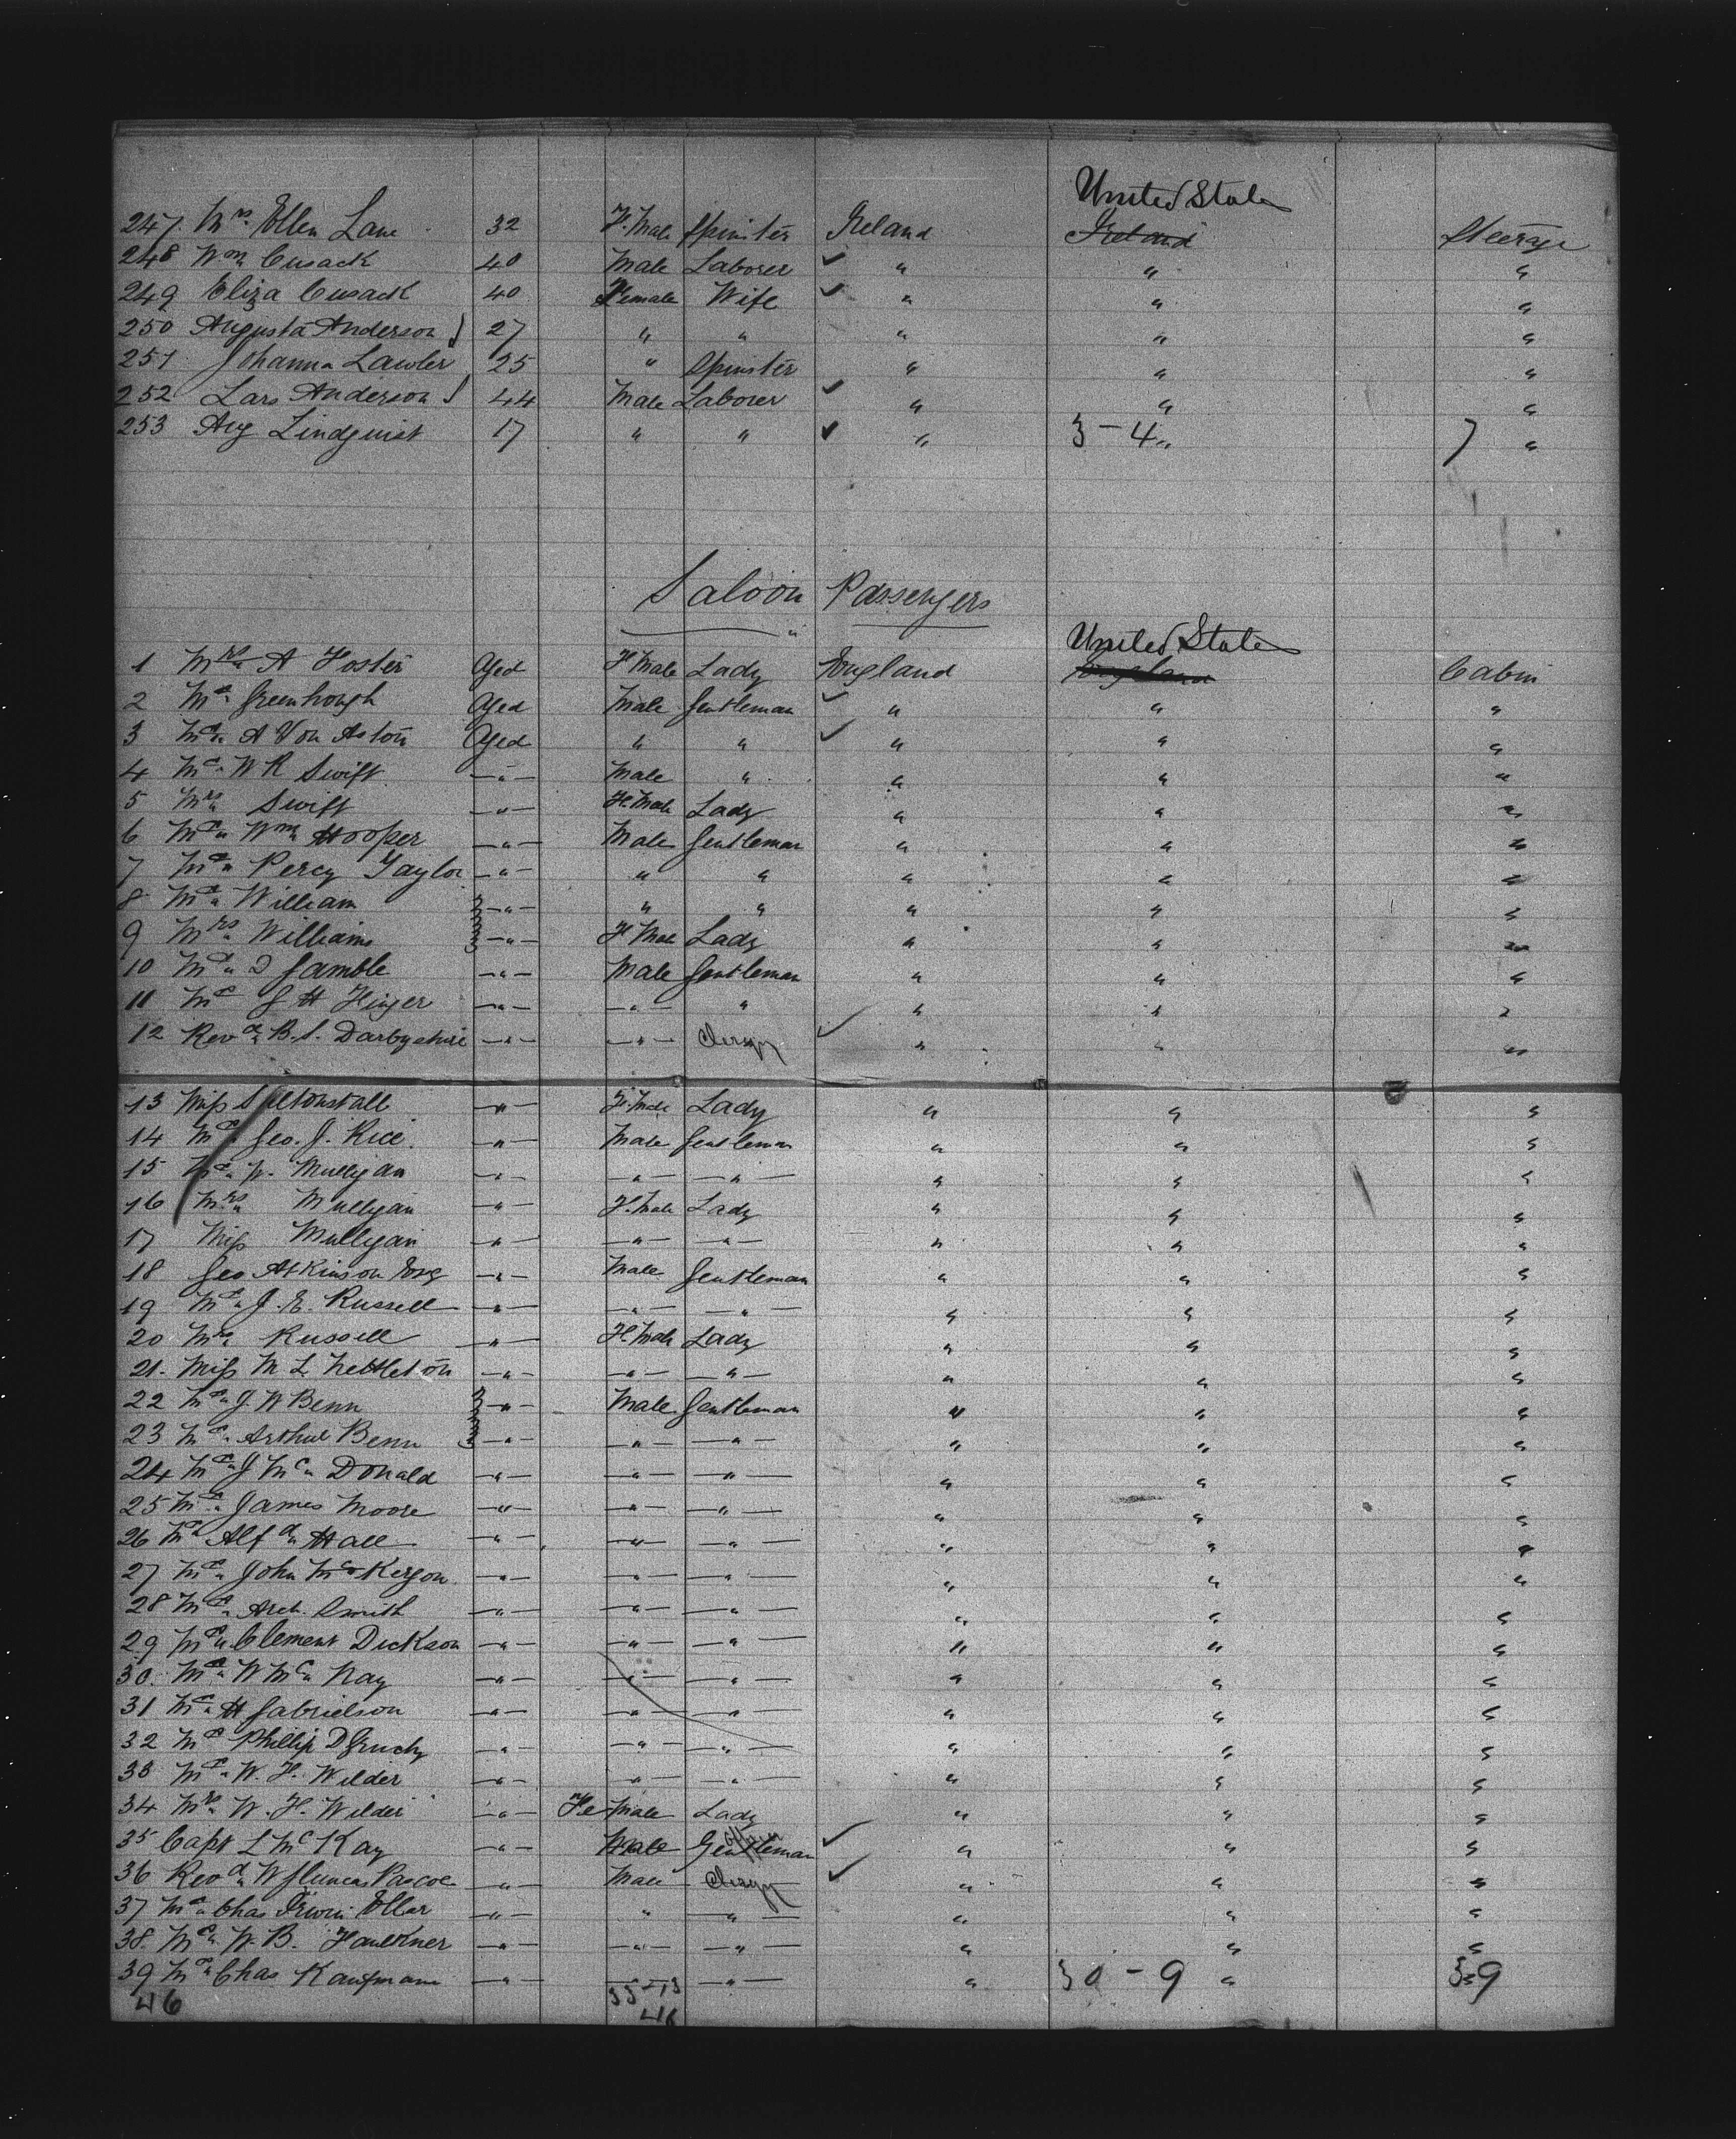 United States
247. Mrs. Ellen Lane 32 F. Male Spinster Ireland Ireland Steerage
248 Wm Cusack 40 Male Laborer ✓ " " "
249 Eliza Cusack 40 Female Wife ✓ " " "
250 Augusta Anderson } 27 " " " " "
251 Johanna Lawler 25 " Spinster " " "
252 Lars Anderson } 44 Male Laborer ✓ " " "
253 Aug Lindquist 17 " " ✓ " 3 - 4 " 7 "
Saloon Passengers
United States
1 Mrs. A Foster Aged F Male Lady England England Cabin
2 Mr. Greenhough Aged Male Gentleman ✓ " " "
3 Mr. A Von Aston Aged " " ✓ " " "
4 Mr. W R Swift -"- Male " " " "
5 Mrs. Swift -"- F. Male Lady " " "
6 Mr. Wm Hooper -"- Male Gentleman " " "
7 Mr. Percy Taylor -"- " " " " "
8 Mr. William -"- " " " " "
9 Mrs. Williams -"- F Male Lady " " "
10 Mr. D Gamble -"- Male Gentleman " " "
11 Mr G H Finger -"- -"- " " " "
12 Revd. B. S. Darbyshire -"- -"- Clergy ✓ " " "
13 Miss Saltonstall -"- F. Male Lady " " "
14 Mr. Geo. J. Rice. -"- Male Gentleman " " "
15 Mr. W. Mulligan -"- -"- -"- " " "
16 Mrs. Mulligan -"- F. Male Lady " " "
17 Miss Mulligan -"- -"- -"- " " "
18 Geo Atkinson Esq -"- Male Gentleman " " "
19 Mr. J. E. Russell -"- -"- -"- " " "
20 Mrs. Russell -"- F. Male Lady " " "
21. Miss M L Nettleton -"- -"- -"- " " "
22 Mr. J. W Benn -"- Male Gentleman " " "
23 Mr. Arthur Benn -"- -"- -"- " " "
24 Mr. J Mc. Donald -"- -"- -"- " " "
25 Mr. James Moore -"- -"- -"- " " "
26 Mr Alfd. Hall -"- -"- -"- " " "
27 Mr. John McKergow -"- -"- -"- " " "
28 Mr. Arch. Smith -"- -"- -"- " " "
29 Mr. Clement Dickson -"- -"- -"- " " "
30. Mr. W Mc. Nay -"- -"- -"- " " "
31 Mr. H Gabrielson -"- -"- -"- " " "
32 Mr Phillip D Gruchy -"- -"- -"- " " "
33 Mr. W. H. Wilder -"- -"- -"- " " "
34 Mrs W. H. Wilder -"- Fe Male Lady " " "
35 Capt L McKay -"- Male Gentleman ✓ " " "
36 Revd. W Pascoe -"- Male Clergy ✓ " " "
37 Mr. Chas Irwin Ellar -"- " -"- " " "
38. Mr. W. B. Faulkner -"- -"- -"- " " "
39 Mr. Chas Kaufmann -"- -"- -"- " 30 - 9 " 39
46 33-13
46